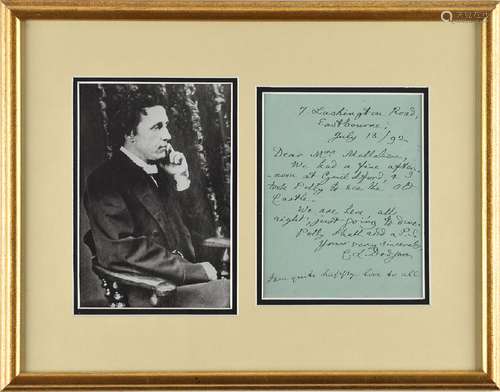 7 Lushington Road,
Eastbourne,
July 13/92
Dear Mrs
We had a fine after-
-noon at & I
took Polly to see the Old
Castle.
We are here all
right, just going to dine.
Polly shall add a P.S.
Yours very sincerely
C. L. Dodgson.
I am quite happy love to all